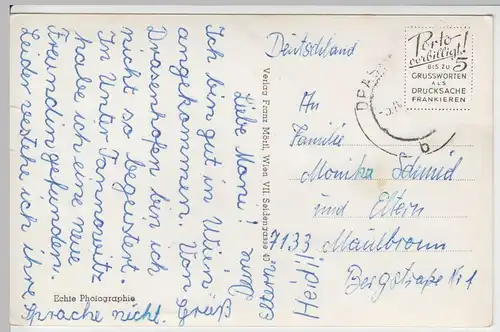 Liebe Moni!
Ich bin gut in Wien
angekommen. Von
Drasenhofen bin ich
nicht so begeistert.
In Unter Tannowitz
habe ich eine neue
Freundin gefunden.
Leider verstehe ich ihre
Sprache nicht. Gruß
Deine
Heidi!
Echte Photographie
Verlag Franz Mörtl, Wien VII. Seidengasse 40
Deutschland
Porto
verbilligt!
BIS ZU 5
GRUSSWORTEN
ALS
DRUCKSACHE
FRANKIEREN
DRAS
b
An
Familie
Monika Schmid
und Eltern
7133 Maulbronn
Bergstraße Nr 1